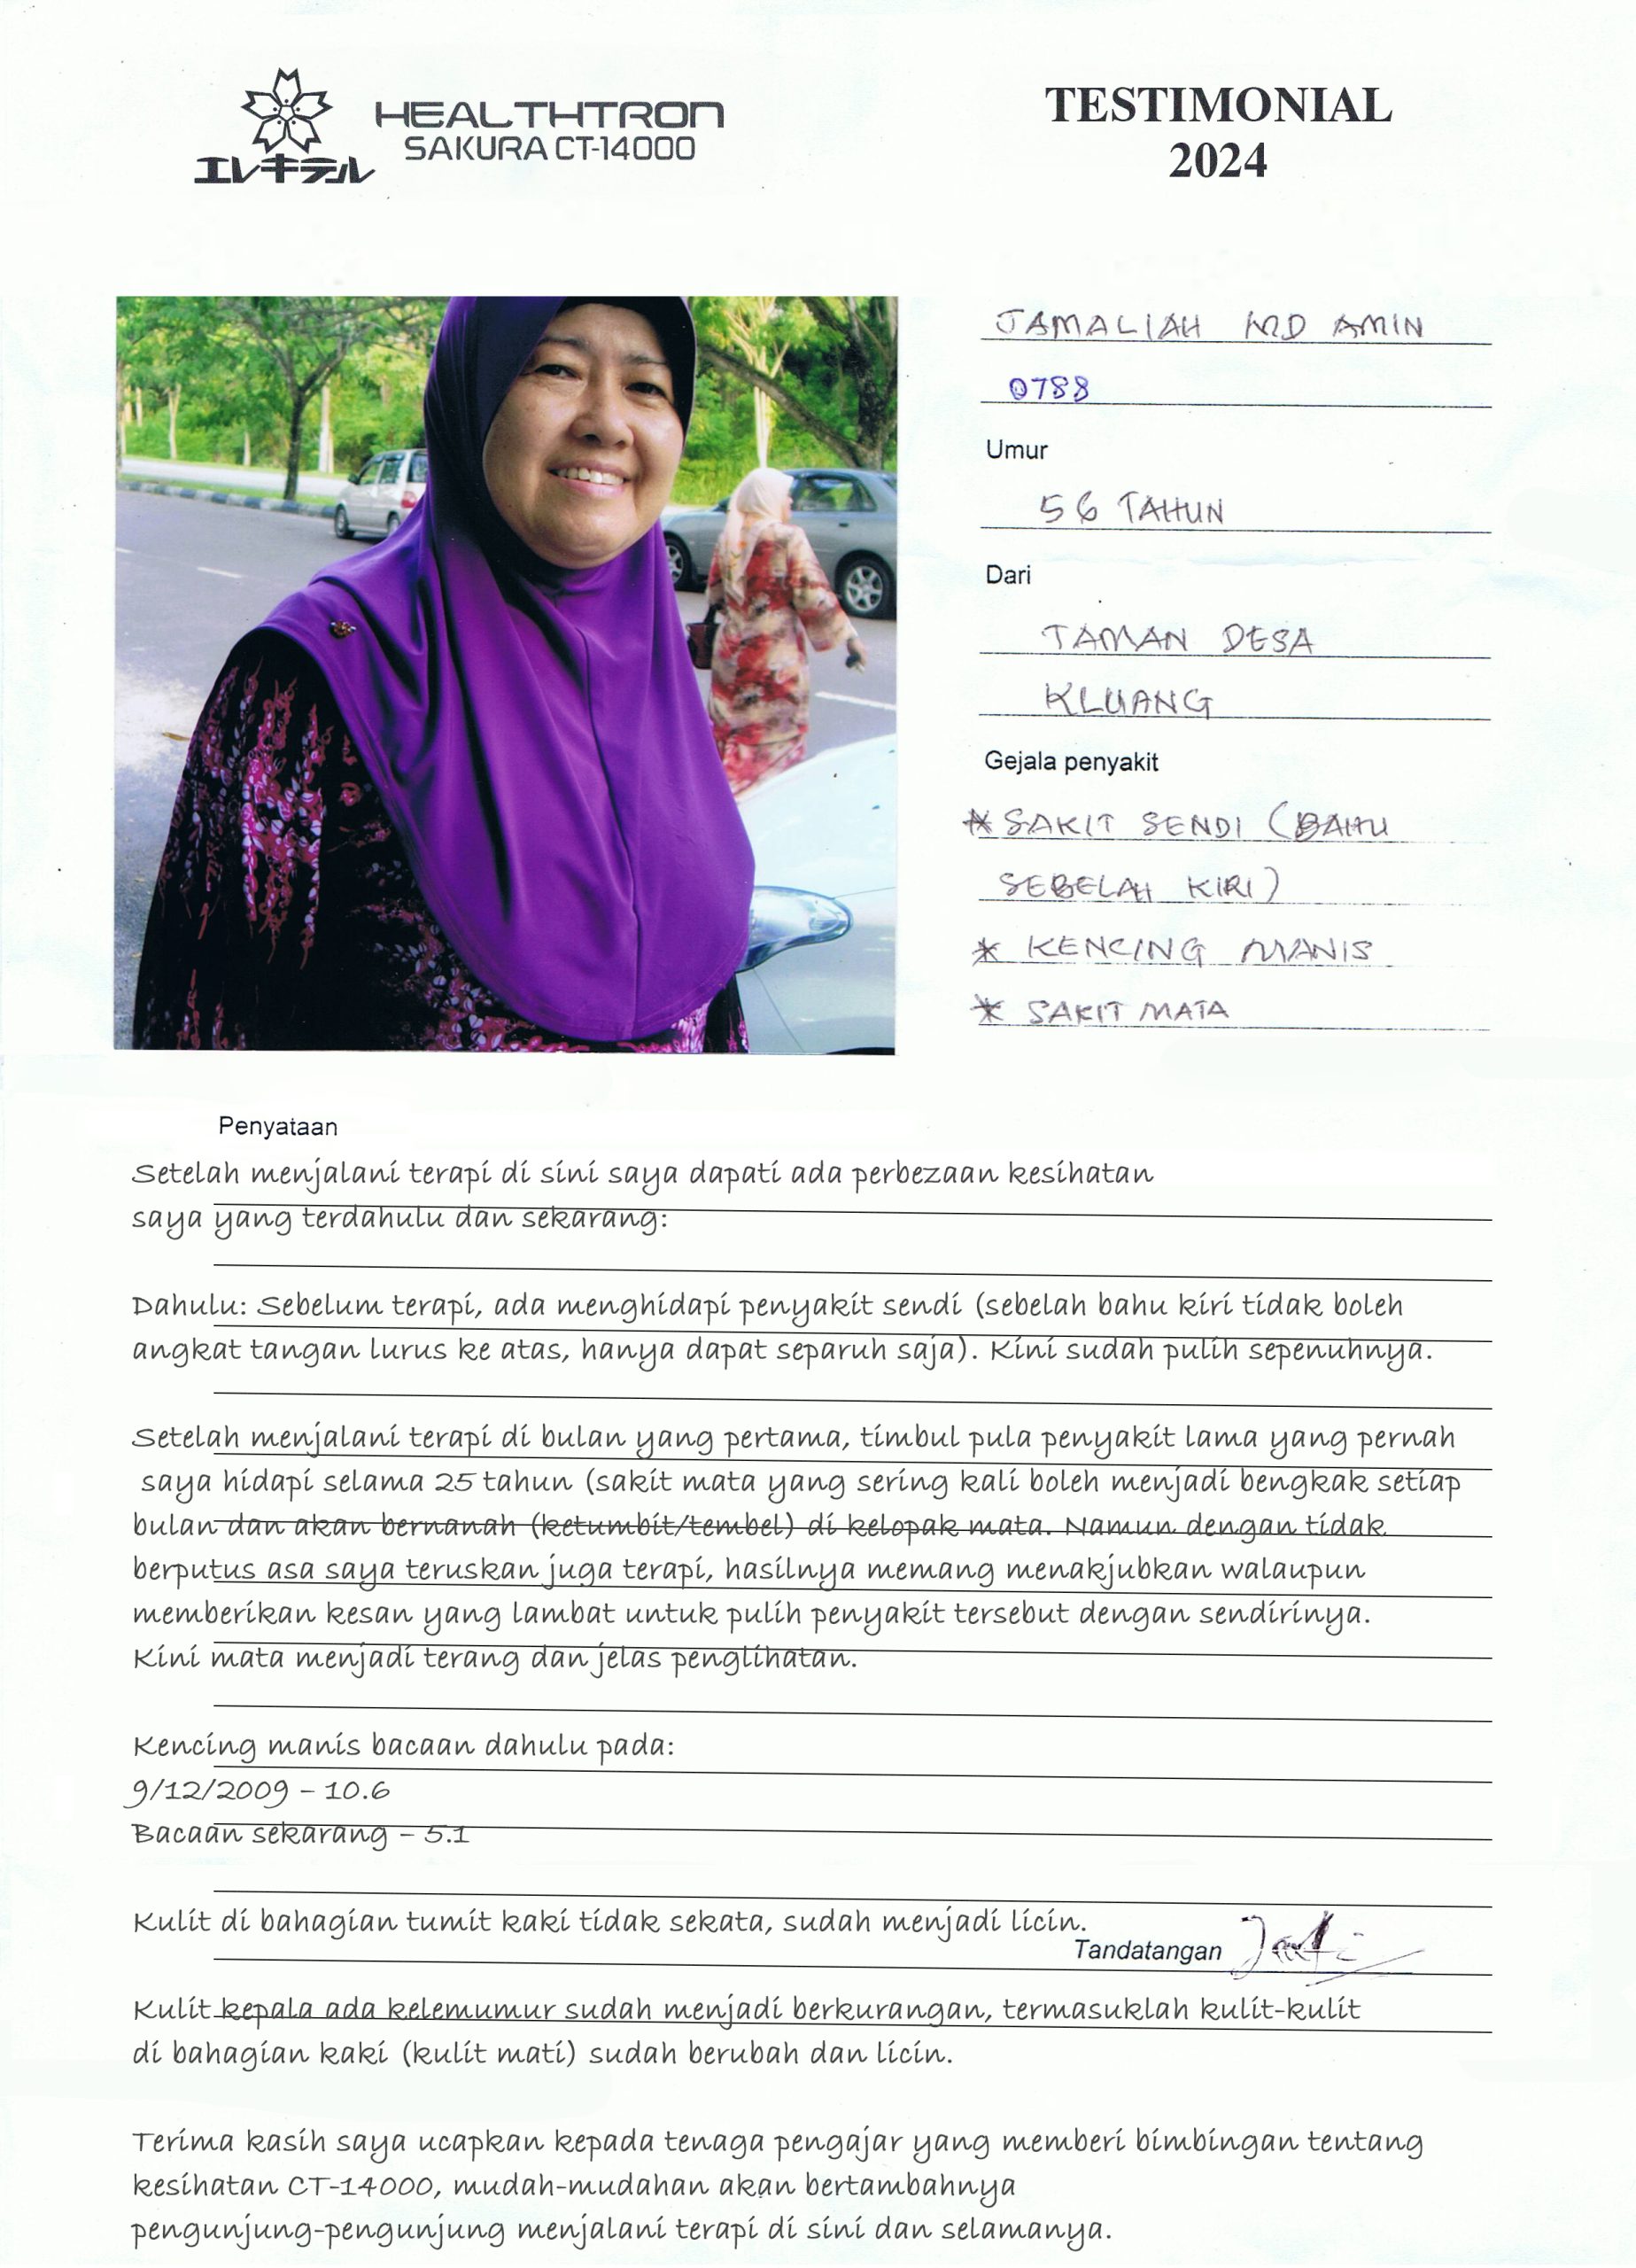 HEALTHTRON
SAKURA CT-14000
エレキテル
TESTIMONIAL
2024
JAMALIAH MD AMIN
0788
Umur
56 TAHUN
Dari
TAMAN DESA
KLUANG
Gejala penyakit
* SAKIT SENDI (BAHU
SEBELAH KIRI)
* KENCING MANIS
* SAKIT MATA
Penyataan
Setelah menjalani terapi di sini saya dapati ada perbezaan kesihatan
saya yang terdahulu dan sekarang:
Dahulu: Sebelum terapi, ada menghidapi penyakit sendi (sebelah bahu kiri tidak boleh
angkat tangan lurus ke atas, hanya dapat separuh saja). Kini sudah pulih sepenuhnya.
Setelah menjalani terapi di bulan yang pertama, timbul pula penyakit lama yang pernah
saya hidapi selama 25 tahun (sakit mata yang sering kali boleh menjadi bengkak setiap
bulan dan akan bernanah (ketumbit/tembel) di kelopak mata. Namun dengan tidak
berputus asa saya teruskan juga terapi, hasilnya memang menakjubkan walaupun
memberikan kesan yang lambat untuk pulih penyakit tersebut dengan sendirinya.
Kini mata menjadi terang dan jelas penglihatan.
Kencing manis bacaan dahulu pada:
9/12/2009 – 10.6
Bacaan sekarang – 5.1
Kulit di bahagian tumit kaki tidak sekata, sudah menjadi licin.
Tandatangan
Kulit kepala ada kelemumur sudah menjadi berkurangan, termasuklah kulit-kulit
di bahagian kaki (kulit mati) sudah berubah dan licin.
Terima kasih saya ucapkan kepada tenaga pengajar yang memberi bimbingan tentang
kesihatan CT-14000, mudah-mudahan akan bertambahnya
pengunjung-pengunjung menjalani terapi di sini dan selamanya.